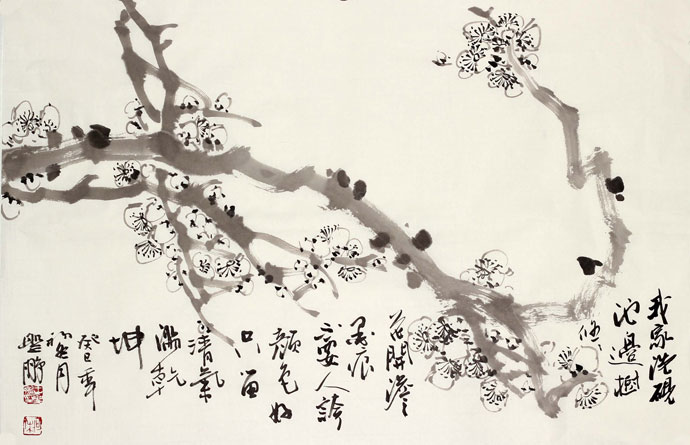 我家洗硯
池邊樹
個
花開澹
墨痕
不要人誇
顏色好
只留
清氣
滿乾
坤
癸巳年
月